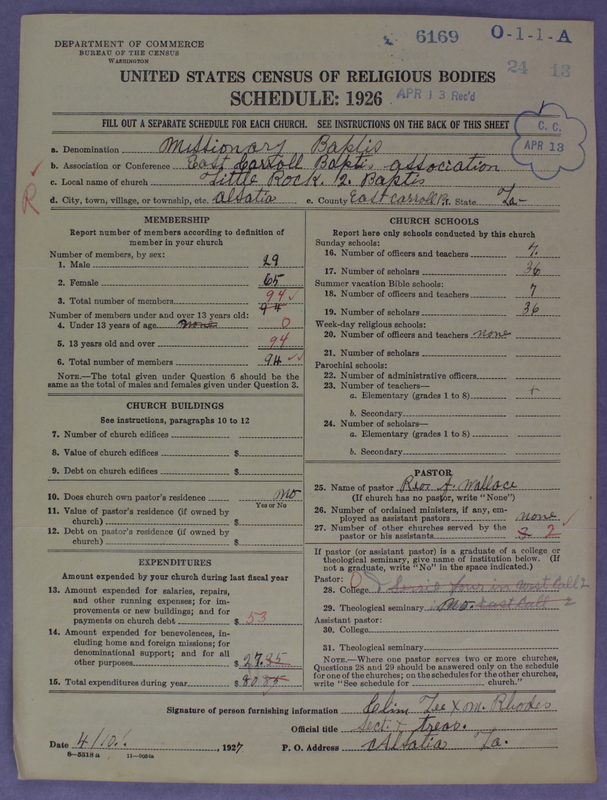 DEPARTMENT OF COMMERCE
BUREAU OF THE CENSUS
WASHINGTON
6169
O-1-1-A
24 13
UNITED STATES CENSUS OF RELIGIOUS BODIES
SCHEDULE: 1926
APR 13 Rec'd
FILL OUT A SEPARATE SCHEDULE FOR EACH CHURCH. SEE INSTRUCTIONS ON THE BACK OF THIS SHEET
C. C.
APR 13
a. Denomination Missionary Baptis
b. Association or Conference East Carroll Baptis association
c. Local name of church Little Rock 2 Baptis
R
d. City, town, village, or township, etc. alsatia e. County East Carroll State La-
MEMBERSHIP
Report number of members according to definition of
member in your church
Number of members, by sex:
1. Male 29
2. Female 65
3. Total number of members 94 94
Number of members under and over 13 years old:
4. Under 13 years of age none 0
5. 13 years old and over 94
6. Total number of members 94
NOTE.—The total given under Question 6 should be
the same as the total of males and females given under Question 3.
CHURCH BUILDINGS
See instructions, paragraphs 10 to 12
7. Number of church edifices
8. Value of church edifices $
9. Debt on church edifices $
10. Does church own pastor's residence no
Yes or No
11. Value of pastor's residence (if owned by
church) $
12. Debt on pastor's residence (if owned by
church) $
EXPENDITURES
Amount expended by your church during last fiscal year
13. Amount expended for salaries, repairs,
and other running expenses; for im-
provements or new buildings; and for
payments on church debt $ 53
14. Amount expended for benevolences, in-
cluding home and foreign missions; for
denominational support; and for all
other purposes $ 27.85
15. Total expenditures during year $ 80.85
CHURCH SCHOOLS
Report here only schools conducted by this church
Sunday schools:
16. Number of officers and teachers 7
17. Number of scholars 36
Summer vacation Bible schools:
18. Number of officers and teachers 7
19. Number of scholars 36
Week-day religious schools:
20. Number of officers and teachers none
21. Number of scholars
Parochial schools:
22. Number of administrative officers
23. Number of teachers—
a. Elementary (grades 1 to 8)
b. Secondary
24. Number of scholars—
a. Elementary (grades 1 to 8)
b. Secondary
PASTOR
25. Name of pastor Rev A. Wallace
(If church has no pastor, write "None")
26. Number of ordained ministers, if any, em-
ployed as assistant pastors none
27. Number of other churches served by the
pastor or his assistants 3 2
If pastor (or assistant pastor) is a graduate of a college or
theological seminary, give name of institution below. (If
not a graduate, write "No" in the space indicated.)
Pastor:
28. College
29. Theological seminary no.
Assistant pastor:
30. College
31. Theological seminary
NOTE.—Where one pastor serves two or more churches,
Questions 28 and 29 should be answered only on the schedule
for one of the churches; on the schedules for the other churches,
write "See schedule for church."
Signature of person furnishing information Lee x m. Rhodes
Official title Sect. + treas.
Date 4/10. , 1927 P. O. Address alsatia La.
8—5518 a 11—9284